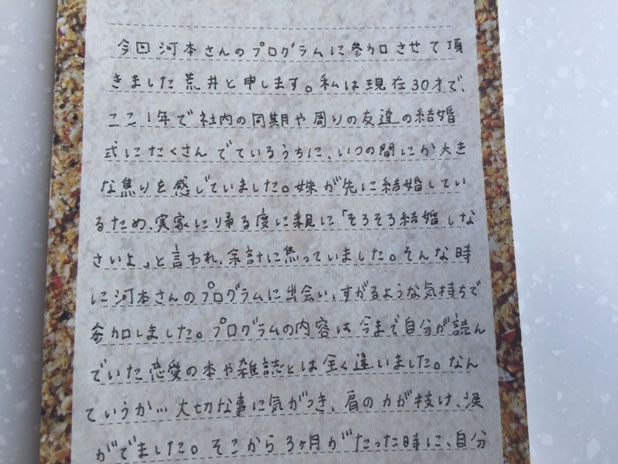 今回河本さんのプログラムに参加させて頂
きました荒井と申します。私は現在30才で、
ここ1年で社内の同期や周りの友達の結婚
式にたくさんでているうちに、いつの間にか大き
な焦りを感じていました。妹が先に結婚してい
るため、実家に帰る度に親に「そろそろ結婚しな
さいよ」と言われ、余計に焦っていました。そんな時
に河本さんのプログラムに出会い、すがるような気持ちで
参加しました。プログラムの内容は今まで自分が読ん
でいた恋愛の本や雑誌とは全く違いました。なん
ていうか…大切な事に気がつき、肩の力が抜け、涙
がでました。そこから3ヶ月がたった時に、自分